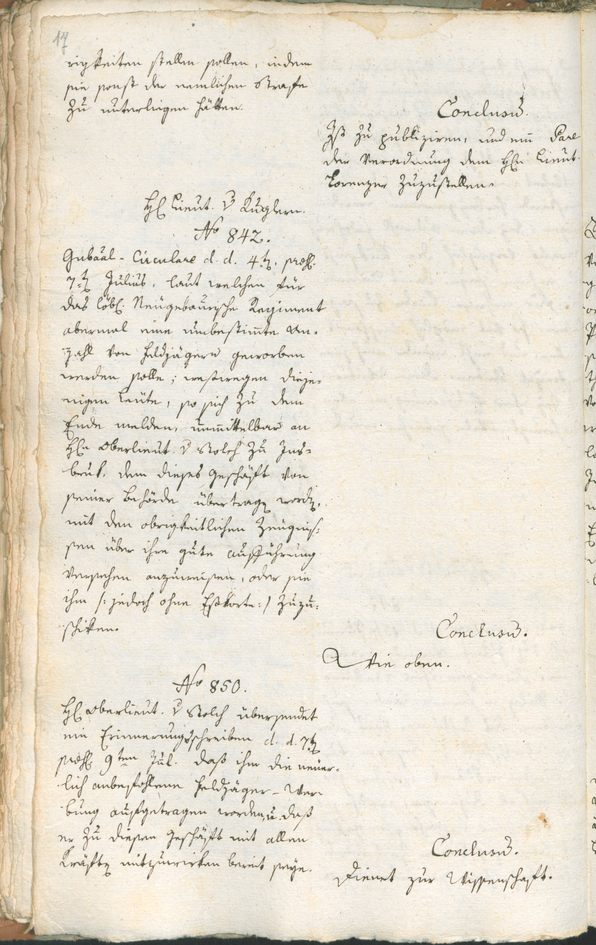 17
rigkeiten stellen sollen, indem
sie sonst der nemlichen Strafe
zu unterliegen hätten.
Conclusũ.
Ist zu publiziren, und ein Pare
der Verordnung dem Hℓ Lieut.
Lorenzer zuzustellen.
Hℓ Lieut. v Kuglern.
No 842.
Gubãal-Circulare d. d. 4t, præs.
7t Julius, laut welchen für
das löbl. Neugebaurische Regiment
abermal eine unbestimte An-
zahl von Feldjägern geworben
werden solle; weswegen dieje-
nigen Leute, so sich zu dem
Ende melden, unmittelbar an
Hℓ Oberlieut. v Stolch zu Ins-
bruk, dem dieses Geschäft von
seiner Behörde übertragen worden,
mit den obrigkeitlichen Zeugnis-
sen über ihre gute Aufführung
versehen anzuweisen, oder sie
ihm /: jedoch ohne Eskorte :/ zuzu-
schiken.
Conclusũ.
Wie oben.
No 850.
Hℓ Oberlieut. v Stolch übersendet
ein Erinnerungsschreiben d. d. 7t
præs. 9ten Jul. daß ihm die neuer-
lich anbefohlene Feldjäger-Wer-
bung aufgetragen worden, u. daß
er zu diesen Geschäft mit allen
Kräften mitzuwirken bereit seye.
Conclusũ.
Dienet zur Wissenschaft.